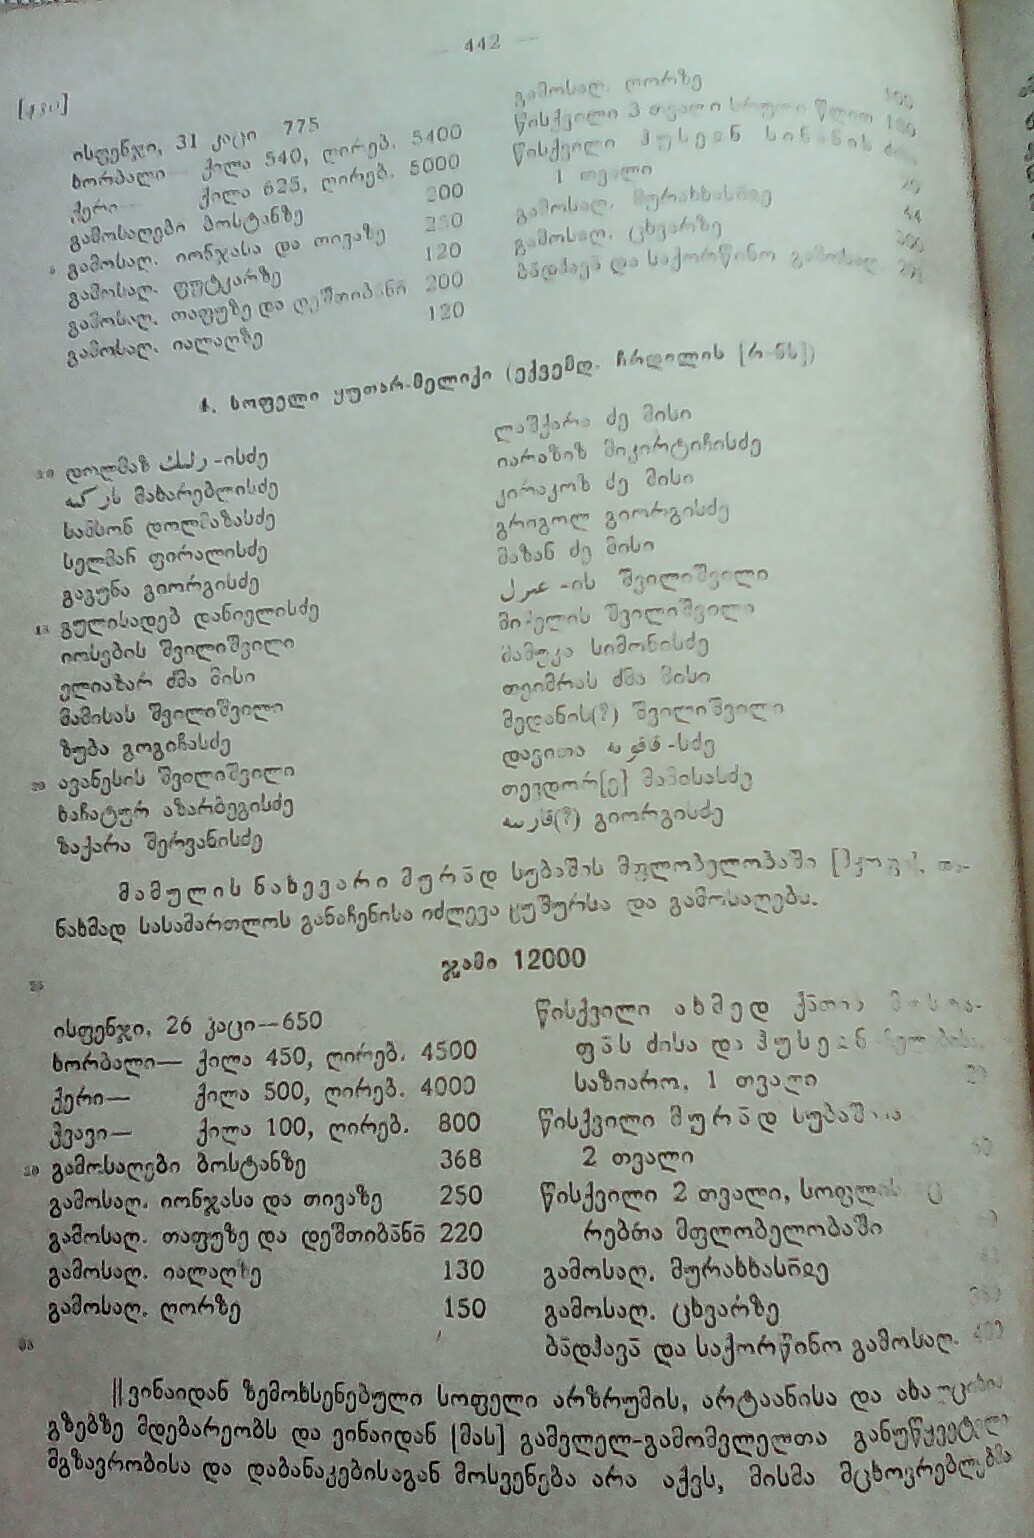 — 442 —
ისფენჯი, 31 კაცი 775
ხორბალი— ქილა 540, ღირებ. 5400
ქერი— ქილა 625, ღირებ. 5000
გამოსაღები ბოსტანზე 200
5 გამოსაღ. იონჯასა და თივაზე 250
გამოსაღ. ფუტკარზე 120
გამოსაღ. თაფუზე და დეშთიბანი 200
გამოსაღ. იალაღზე 120
გამოსაღ. ღორზე
წისქვილი 3 თვალი სრული წლით
წისქვილი ჰუსეინ სინანის
1 თვალი
გამოსაღ. მურახხასიიე
გამოსაღ. ცხვარზე
ბადჰავა და საქორწინო გამოსაღ.
4. სოფელი ყუთარ-მელიქი (ექვემდ. ჩრდილის [რ-ნს])
10 დოლმაზ -ისძე
მახარებლისძე
სამსონ დოლმაზასძე
სელმან ფირალისძე
გაგუნა გიორგისძე
15 გულისადებ დანიელისძე
იოსების შვილიშვილი
ელიაზარ ძმა მისი
მამისას შვილიშვილი
ზუბა გოგიჩასძე
20 ავანესის შვილიშვილი
ხაჩატურ აზარბეგისძე
ზაქარა შერვანისძე
ლაშქარა ძე მისი
იარაზიზ მიკირტიჩისძე
კირაკოზ ძე მისი
გრიგოლ გიორგისძე
მაზან ძე მისი
-ის შვილიშვილი
მიქელის შვილიშვილი
მამუკა სიმონისძე
თეიმრას ძმა მისი
მედანის(?) შვილიშვილი
დავითა -სძე
თევდორ[ე] მამისასძე
(?) გიორგისძე
მამულის ნახევარი მურად სუბაშის მფლობელობაში თა-
ნახმად სასამართლოს განაჩენისა იძლევა ცუშურსა და გამოსაღება.
25
ჯამი 12000
ისფენჯი, 26 კაცი—650
ხორბალი— ქილა 450, ღირებ. 4500
ქერი— ქილა 500, ღირებ. 4000
ჭვავი— ქილა 100, ღირებ. 800
30 გამოსაღები ბოსტანზე 368
გამოსაღ. იონჯასა და თივაზე 250
გამოსაღ. თაფუზე და დეშთიბანი 220
გამოსაღ. იალაღზე 130
გამოსაღ. ღორზე 150
35
წისქვილი ახმედ
ფას ძისა და ჰუსეინ
საზიარო, 1 თვალი
წისქვილი მურად სუბაშისა
2 თვალი
წისქვილი 2 თვალი,
რებთა მფლობელობაში
გამოსაღ. მურახხასიიე
გამოსაღ. ცხვარზე
ბადჰავა და საქორწინო გამოსაღ.
||ვინაიდან ზემოხსენებული სოფელი არზრუმის, არტაანისა და ახალციხის
გზებზე მდებარეობს და ვინაიდან [მას] გამვლელ-გამომვლელთა განუწყვეტელი
მგზავრობისა და დაბანაკებისაგან მოსვენება არა აქვს, მისმა მცხოვრებლებმა